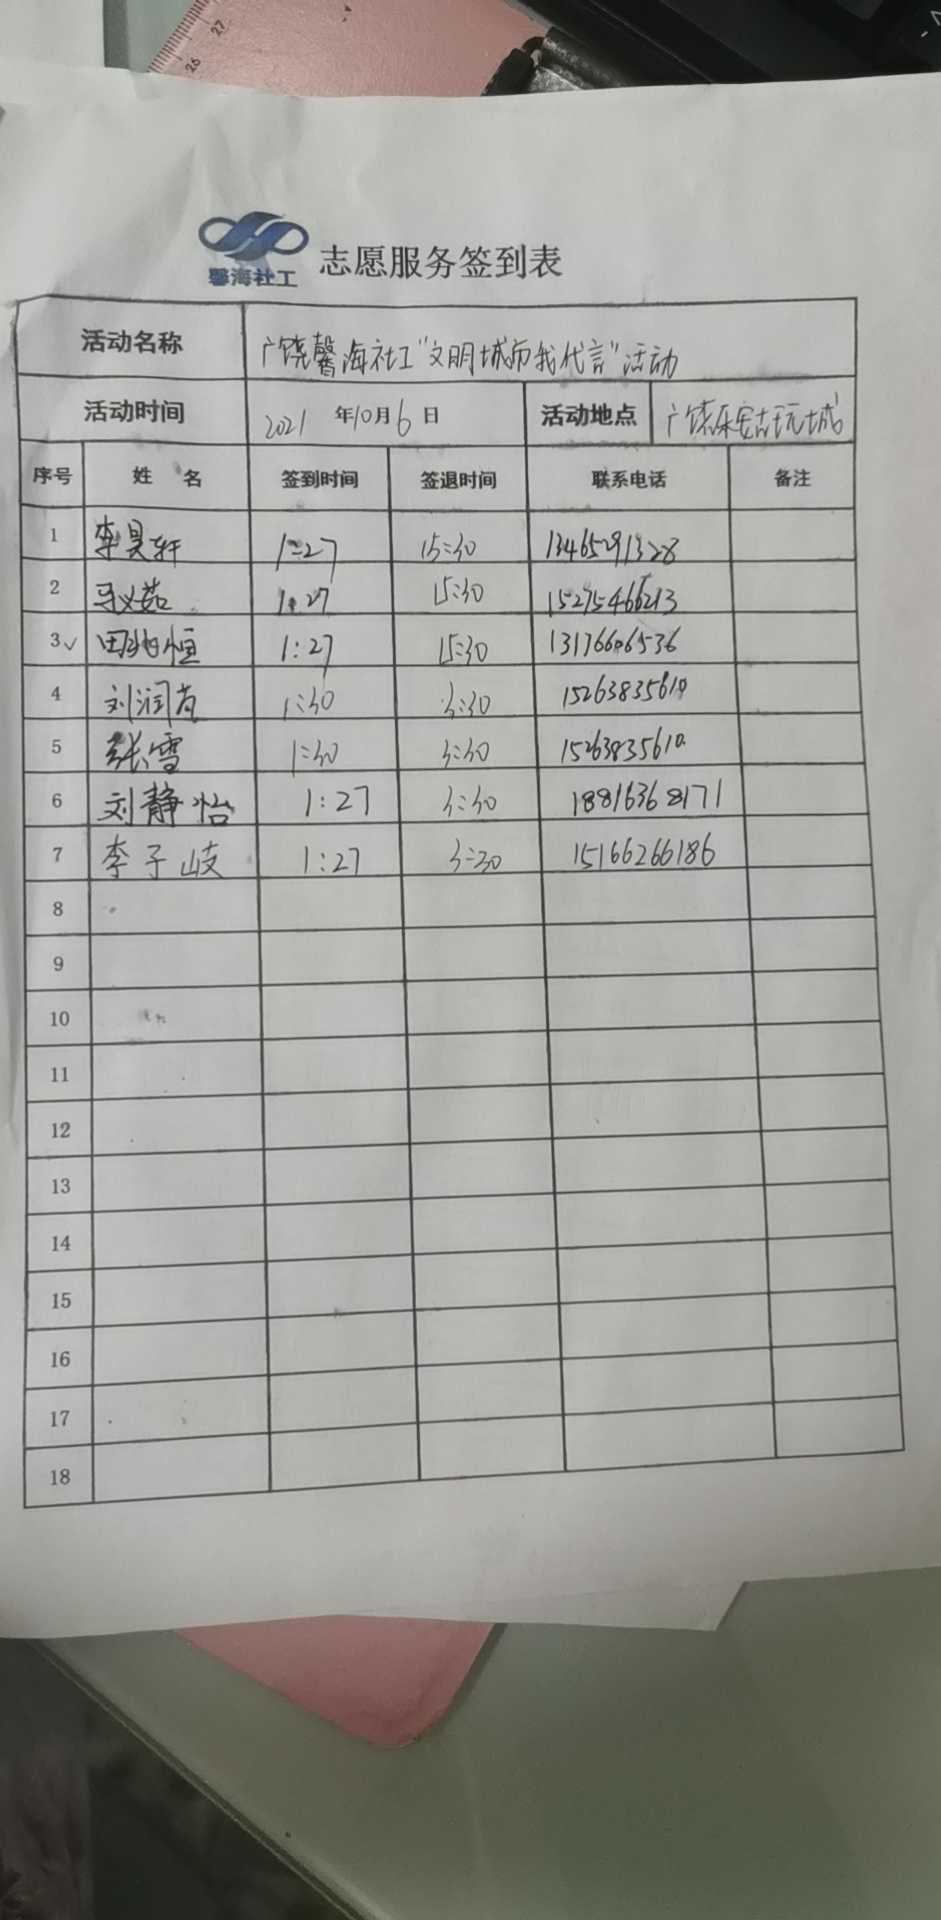 27
26
馨海社工 志愿服务签到表
活动名称 广饶馨海社工"文明城市我代言"活动
活动时间 2021 年10月6日 活动地点 广饶乐安古玩城
序号 姓 名 签到时间 签退时间 联系电话 备注
1 李昊轩 1:27 15:30 13465291328
2 1:27 15:30 15275466213
3 田 恒 1:27 15:30 13176606536
4 刘润 1:30 3:30 15263835610
5 张雪 1:30 3:30 15263835610
6 刘静怡 1:27 3:30 18816368171
7 李子岐 1:27 3:30 15166266186
8
9
10
11
12
13
14
15
16
17
18